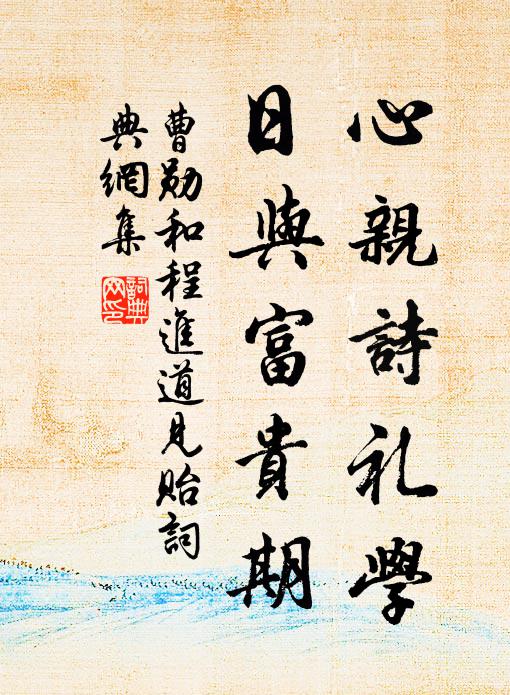 心親詩礼學
日與富貴期
曹勛和程進道見貽詞
典網集
詞典
网印